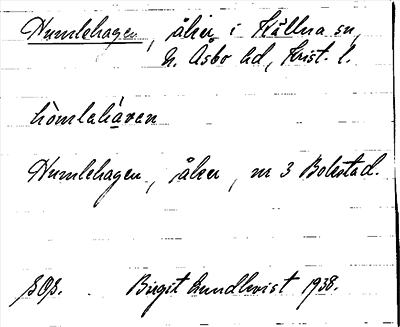 Humlehagen, åker i Källna sn,
N. Åsbo hd, Krist. l.
hòmlahàven
Humlehagen, åker, nr 3 Bolestad.
Birgit Lundkvist 1938.